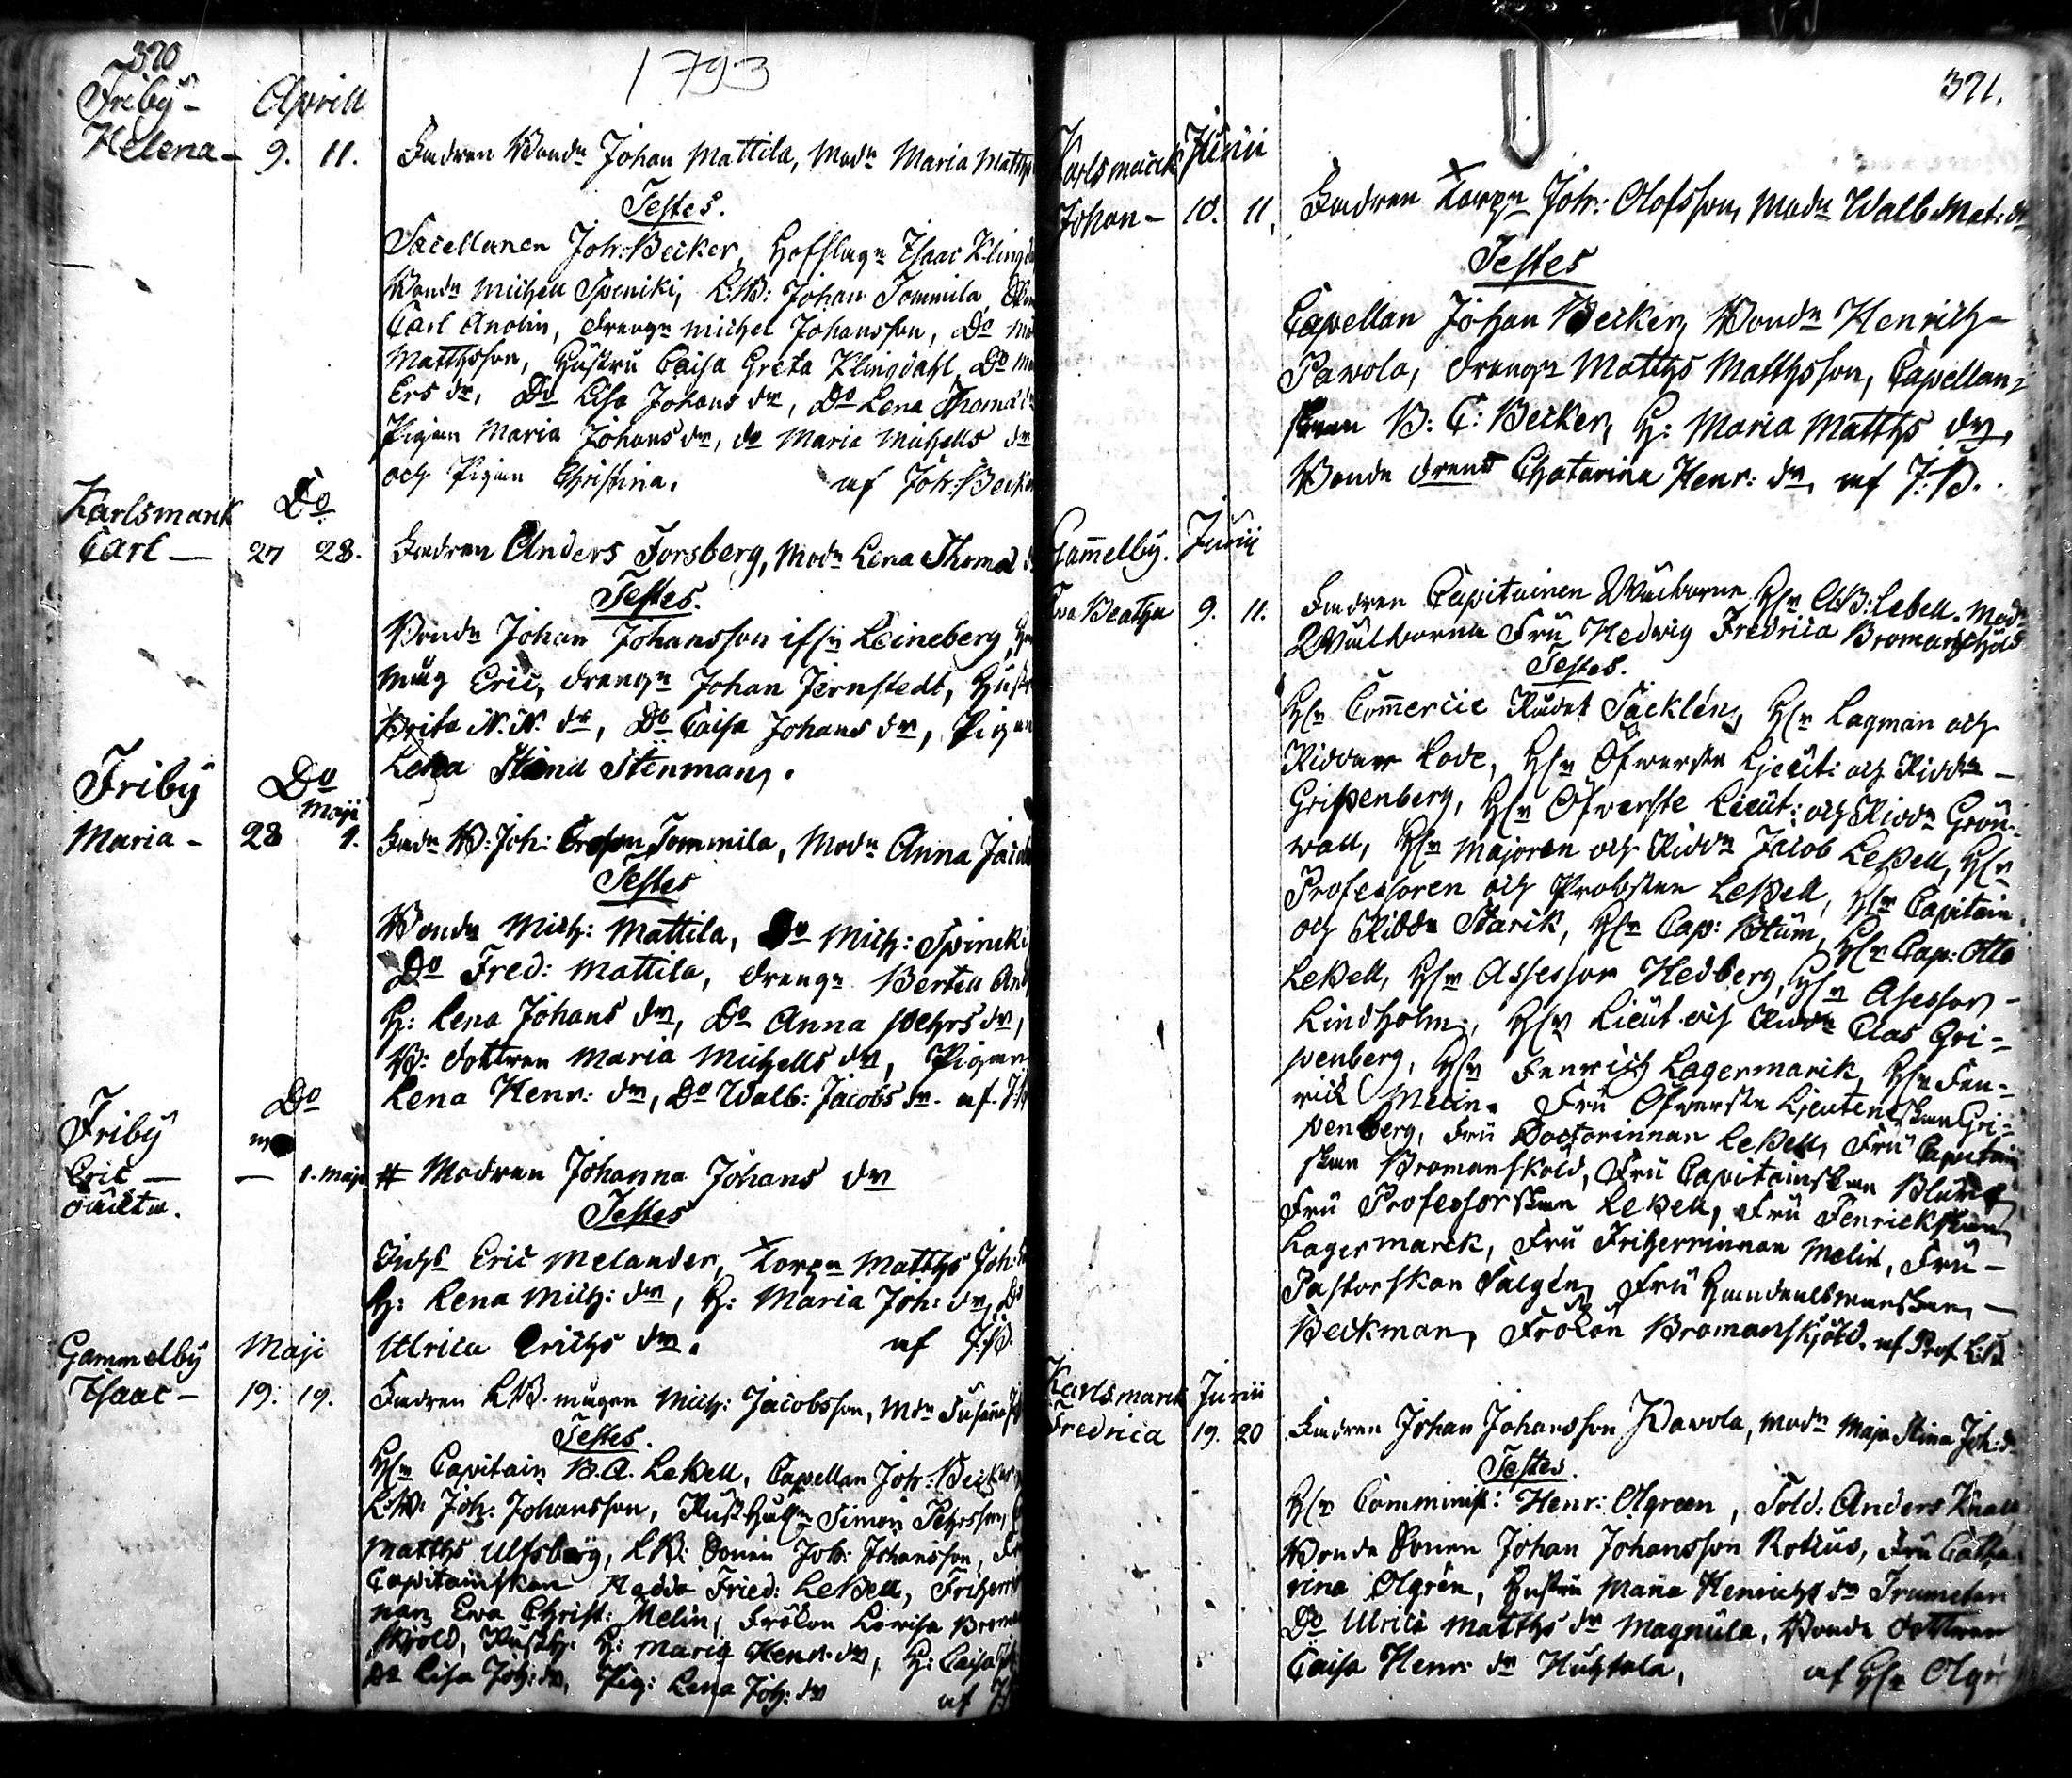 370
1793
Friby - Aprill
Helena - 9. 11. Fadren Bondn Johan Mattila, Modn Maria Matths
Testes.
Sacellanen Joh: Becker, Hofslagn Isaac Klingda
Bondn Michell Spiniki, L:B: Johan Tommila,
Carl Anolin, drengn Michel Johansson, Do
Matthsson, Hustru Caisa Greta Klingdahl, Do
Ers dr, Do Lisa Johans dr, Do Lena Thomæ dr
Pigan Maria Johans dr, do Maria Michells dr
och Pigan Christina. af Joh: Becker
Karlsmark Do
Carl - 27 28. Fadren Anders Forsberg, Modn Lena Thomæ
Testes.
Bondn Johan Johansson ifrn Leineberg,
måg Eric, drengn Johan Jernstedt, Hustr
Brita N.N. dr, Do Caisa Johans dr, Pigan
Lena Stina Stenman.
Friby Do
Maji
Maria - 28 1. Fadn B: Joh: Ersson Tommila, Modn Anna Jacobs
Testes
Bondn Mich: Mattila, Do Mich: Spiniki
Do Fred: Mattila, drengn Bertell
H: Lena Johans dr, Do Anna Pehrs dr,
B: dottren Maria Michells dr, Pigan
Lena Henr: dr, Do Walb: Jacobs dr. af J:B
Friby Do
Eric - - 1. Maji # Modren Johanna Johans dr
oäckta.
Testes
Eric Melander, Torpn Matths Joh:
H: Lena Mich: dr, H: Maria Joh: dr, Do
Ulrica Erichs dr. af J:B.
Gammelby Maji
Isaac - 19. 19. Fadren L:B. mågen Mich: Jacobsson, Mdn Susana
Testes.
Hr Capitain B.A. Lebell, Capellan Joh: Becker
L:B: Joh. Johansson, Rusthålln Simon Pehrsson,
Matths Ulfsberg, L:B: Sonen Joh: Johansson,
Capitainskan Hedda Fried: Lebell, Friherrin
nan Ewa Christ: Melin, Fröken Lovisa Broman
skjöld, Rusth: H: Maria Henr: dr, H: Caisa
Do Lisa Joh: dr, Pig: Lena Joh: dr af
371.
Karlsmark Junii
Johan - 10. 11. Fadren Torpn Joh: Olofsson, Modn Walb Mat: dr
Testes
Capellan Johan Becker, Bondn Henrich
Pawola, drengn Matths Matthsson, Capellan=
skan B: C: Becker, H: Maria Matths dr,
Bonde Catarina Henr: dr, af J:B.
Gammelby. Junii
Ewa Beatha 9. 11. Fadren Capitainen Wälborne Hr A:B: Lebell. Modn
Wälborna Fru Hedwig Fredrica Bromanskjöld
Testes.
Hr Commercie Rådet Säcklén, Hr Lagman och
Riddare Lode, Hr Öfwerste Ljeut: och Riddn
Gripenberg, Hr Öfwerste Lieut: och Riddn Grön-
wall, Hr Majoren och Riddn Jacob Lebell, Hr
Professoren och Probsten Lebell, Hr Capitain
och Riddn Starck, Hr Cap: Blum, Hr Cap: Otto
Lebell, Hr Assessor Hedberg, Hr Asessor
Lindholm, Hr Lieut och Riddn Clas Gri=
penberg, Hr Fenrich Lagermarck, Hr Fen=
rick Melin. Fru Öfwerste Ljeutenskan Gri=
penberg, Fru Doctorinnan Lebell, Fru Capitain
skan Bromanskold, Fru Capitainskan Blum,
Fru Professorskan Lebell, Fru Fenrickskan
Lagermarck, Fru Friherrinnan Melin, Fru
Pastorskan Salgén, Fru Handelsmanskan
Beckman, Fröken Bromanskjöld. af Prof L:B
Karlsmarck Junii
Fredrica 19. 20 Fadren Johan Johansson Pawola, Modn Maja Stina Joh: dr
Testes.
Hr Comminist: Henr: Olgreen, Sold: Anders Knall
Bonde Sonen Johan Johansson Rotius, Fru Catha
rina Olgrén, Hustru Maria Henrichs dr Trumeter
Do Ulrica Matths dr Magnula, Bonde dottren
Caisa Henr: dr Huhtala, af Hr Olgré